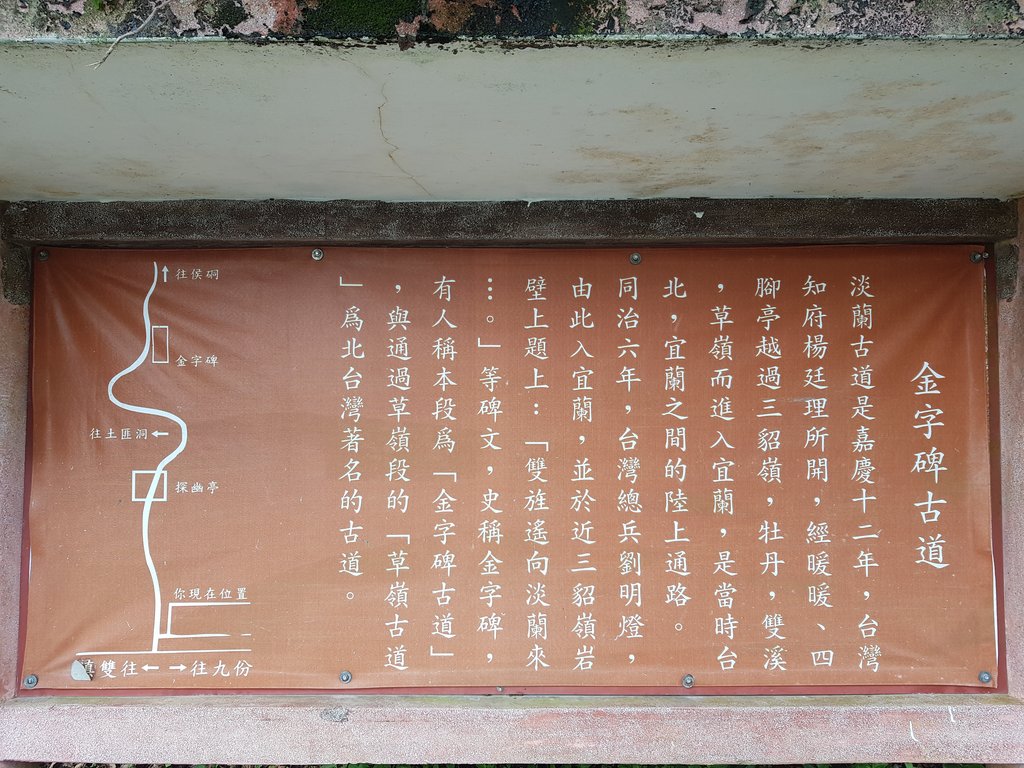 金字碑古道
淡蘭古道是嘉慶十二年，台灣
知府楊廷理所開，經暖暖、四
腳亭越過三貂嶺，牡丹，雙溪
，草嶺而進入宜蘭，是當時台
北，宜蘭之間的陸上通路。
同治六年，台灣總兵劉明燈，
由此入宜蘭，並於近三貂嶺岩
壁上題上：「雙旌遙向淡蘭來
…。」等碑文，史稱金字碑，
有人稱本段為「金字碑古道」
，與通過草嶺段的「草嶺古道
」為北台灣著名的古道。
↑往侯硐
金字碑
往土匪洞←
探幽亭
你現在位置
雙往← →往九份